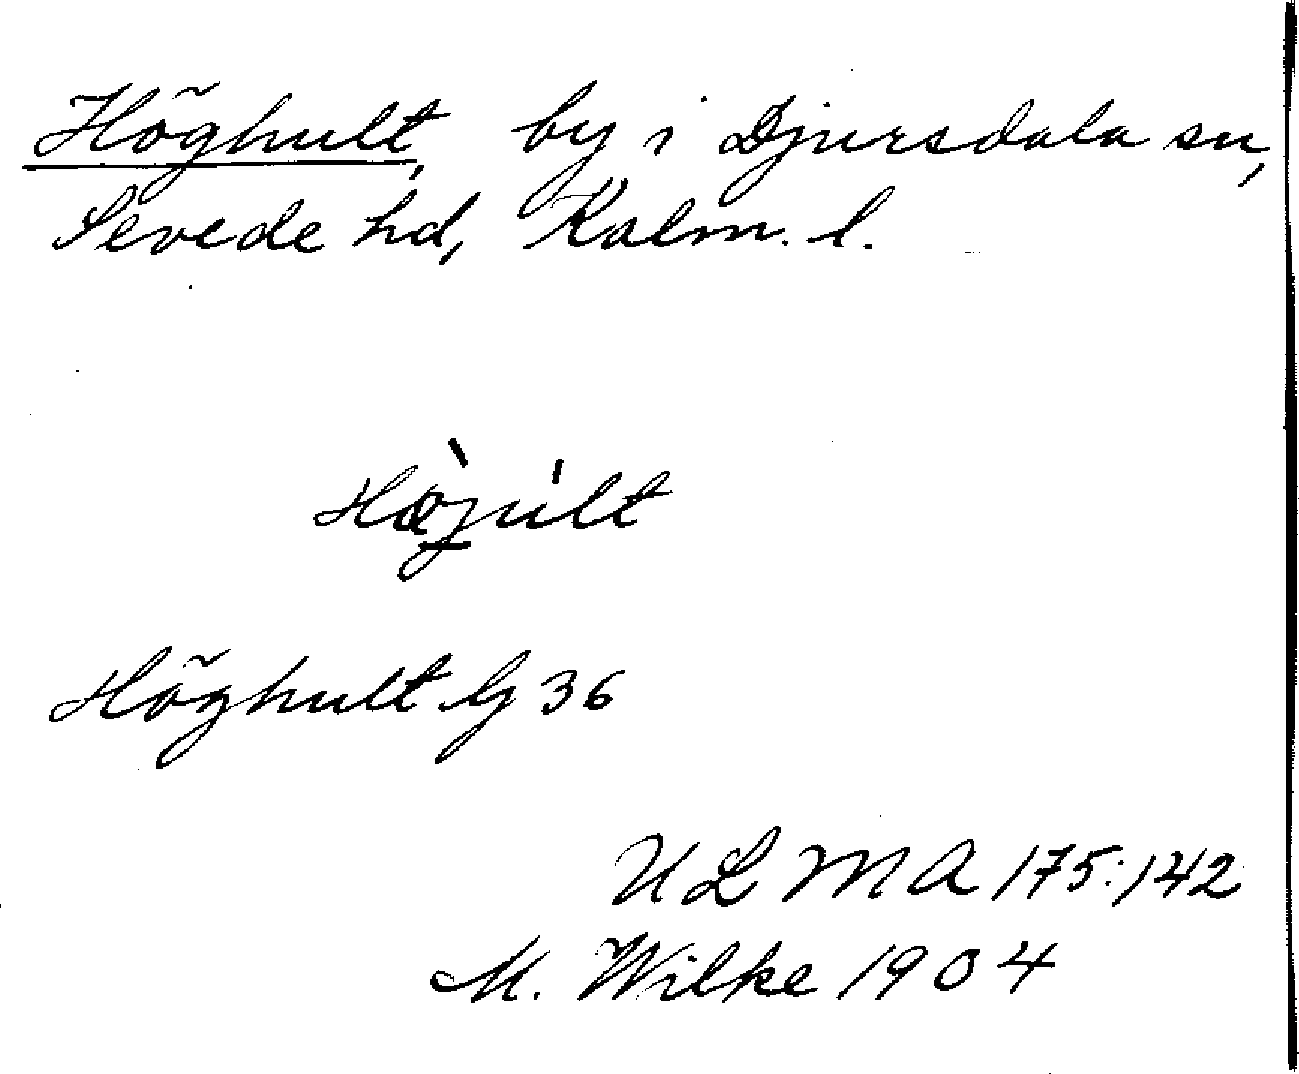 Höghult, by i Djursdala sn,
Sevede hd, Kalm. l.
Hæ̀júlt
Höghult G 36
ULMA 175:142
M. Wilke 1904